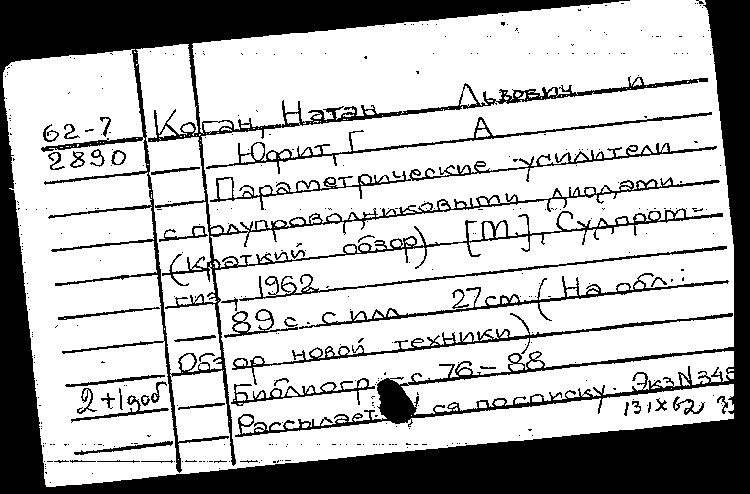 62-7 Коган, Натан Львович и
2890 Юфит, Г А
Параметрические усилители
с полупроводниковыми диодами.
(Краткий обзор). [М.], Судпром-
гиз, 1962.
89 с. с илл. 27см (На обл.:
Обзор новой техники).
2+1доб Библиогр.: с. 76-88
Рассылается по списку. Экз N 348